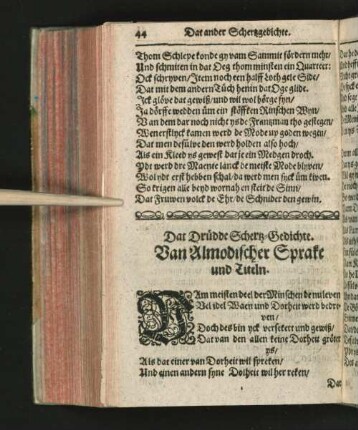 44 Dat ander Schertzgedichte.
Thom Schleye konde gy vam Sammit födern mehr/
Und schmiren in dat Oeg thom minsten ein Quarteer:
Ock schryven/ Item noch een halff hoch gele Side/
Dat mit dem andern Tüch henin dat Oge glide.
Ick glöve dat gewiß/ und wil wol borge syn/
Ja dörffe wedden üm ein
Van dem dar noch nicht ys de Frantzman tho geflogen/
Wenerstlyck kamen werd de Mode up gedem wegen/
Dat men desülve den werd holden also hoch/
Als ein Kleed ys gewest dat
Pdt werd dre Maente lanck de meiste Mode blyven/
Wol ydt erst hebben schal da werd men
So krigen alle beyd wornah en steit de Sinn/
Dat Fruwen volck de Ehr/ de Schnider den gewin.
Dat Drüdde Schertz-Gedichte.
Van Almodischer Sprake
und Tituln.
Am meisten deel der Minschen de nu leven
Vel idel Waen und Dorheit werd bedre-
ven/
Doch des bin yck versekert und gewiß/
Dat van den allen keine Dorheit gröter
ys/
Als dat einer van Dorheit wil spreken/
Und einen andern syne Dolheit wil her reken/
Dat